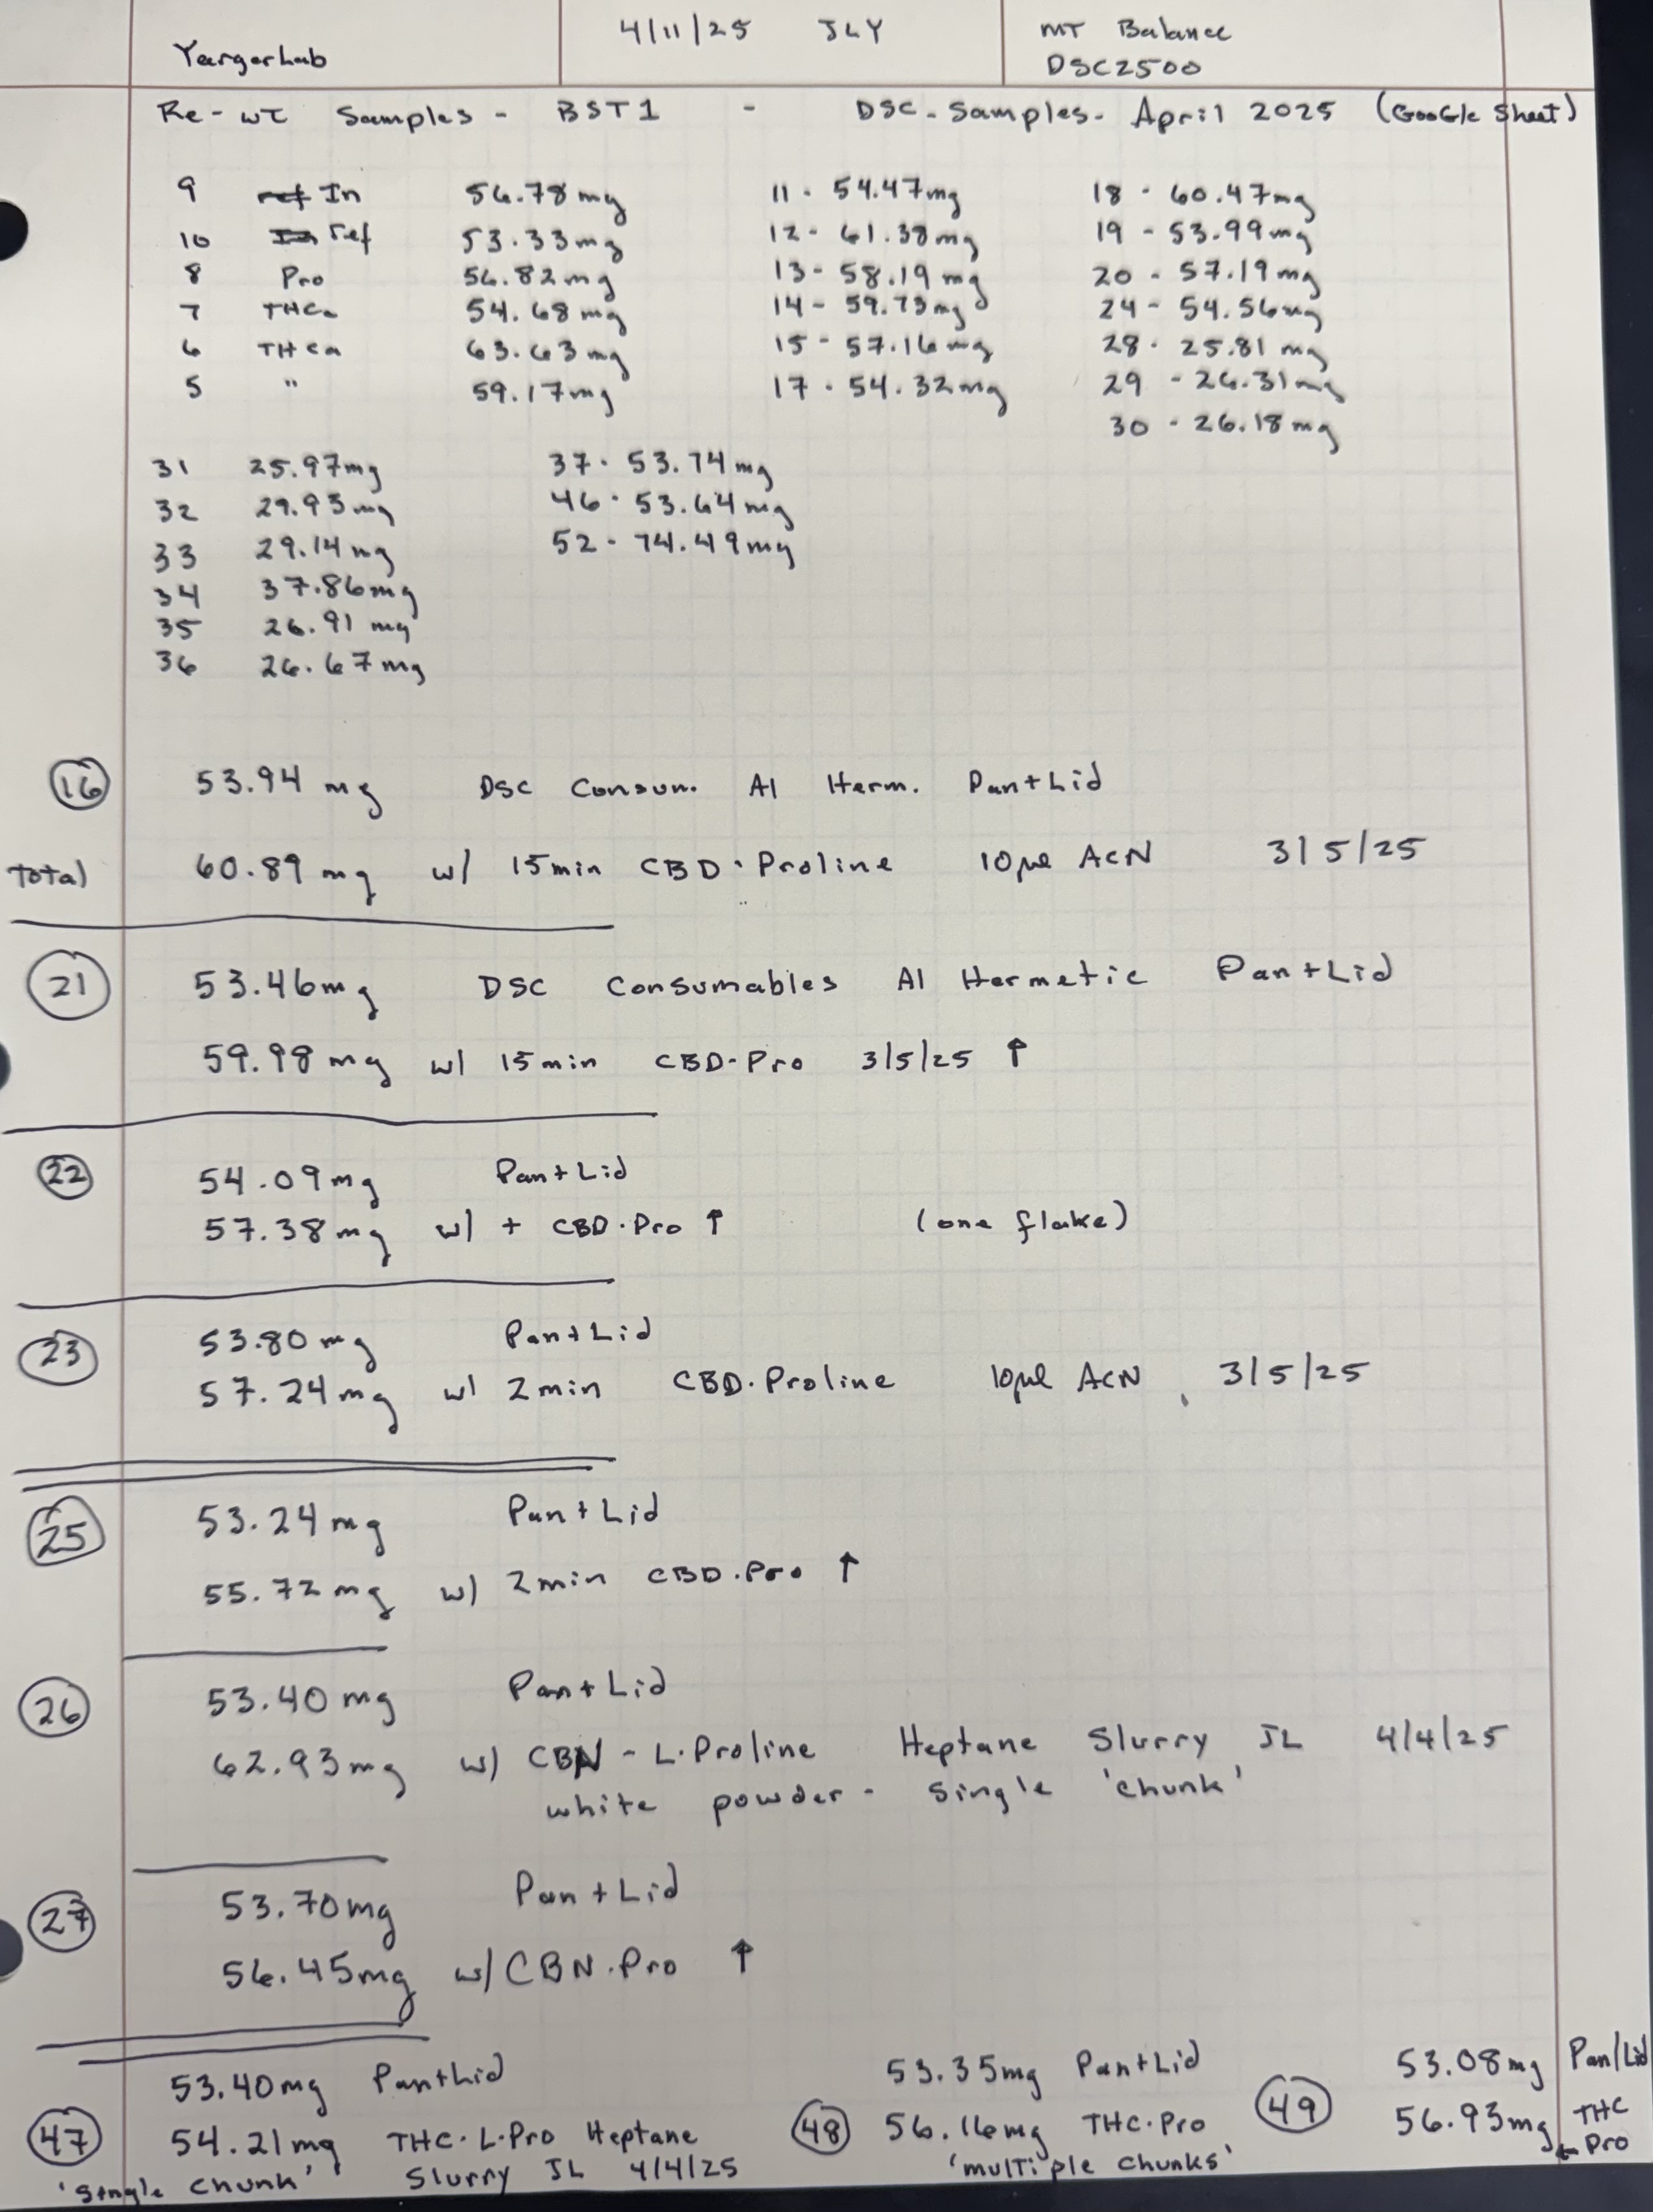 YargerLab
4/11/25 JLY
MT Balance
DSC2500
Re-wt Samples - BST1 - DSC-Samples-April 2025 (Google Sheet)
9 ref In 56.78 mg
10 In ref 53.33 mg
8 Pro 56.82 mg
7 THCa 54.68 mg
6 THCa 63.63 mg
5 " 59.17 mg
11 - 54.47 mg
12 - 61.38 mg
13 - 58.19 mg
14 - 59.73 mg
15 - 57.16 mg
17 - 54.32 mg
18 - 60.47 mg
19 - 53.99 mg
20 - 57.19 mg
24 - 54.56 mg
28 - 25.81 mg
29 - 26.31 mg
30 - 26.18 mg
31 25.97 mg
32 29.93 mg
33 29.14 mg
34 37.86 mg
35 26.91 mg
36 26.67 mg
37 - 53.74 mg
46 - 53.64 mg
52 - 74.49 mg
16 53.94 mg DSC Consum. Al Herm. Pan+Lid
Total 60.89 mg w/ 15min CBD·Proline 10µl ACN 3/5/25
21 53.46 mg DSC Consumables Al Hermetic Pan+Lid
59.98 mg w/ 15min CBD-Pro 3/5/25 ↑
22 54.09 mg Pan+Lid
57.38 mg w/ + CBD·Pro ↑ (one flake)
23 53.80 mg Pan+Lid
57.24 mg w/ 2min CBD·Proline 10µl ACN, 3/5/25
25 53.24 mg Pan+Lid
55.72 mg w/ 2min CBD·Pro ↑
26 53.40 mg Pan+Lid
62.93 mg w/ CBN - L·Proline Heptane Slurry JL 4/4/25
white powder - single 'chunk'
27 53.70 mg Pan+Lid
56.45 mg w/ CBN·Pro ↑
53.40 mg Pan+Lid
47 54.21 mg THC·L·Pro Heptane
'single chunk' Slurry JL 4/4/25
53.35 mg Pan+Lid
48 56.16 mg THC·Pro
'multiple chunks'
53.08 mg Pan/Lid
49 56.93 mg THC
← Pro